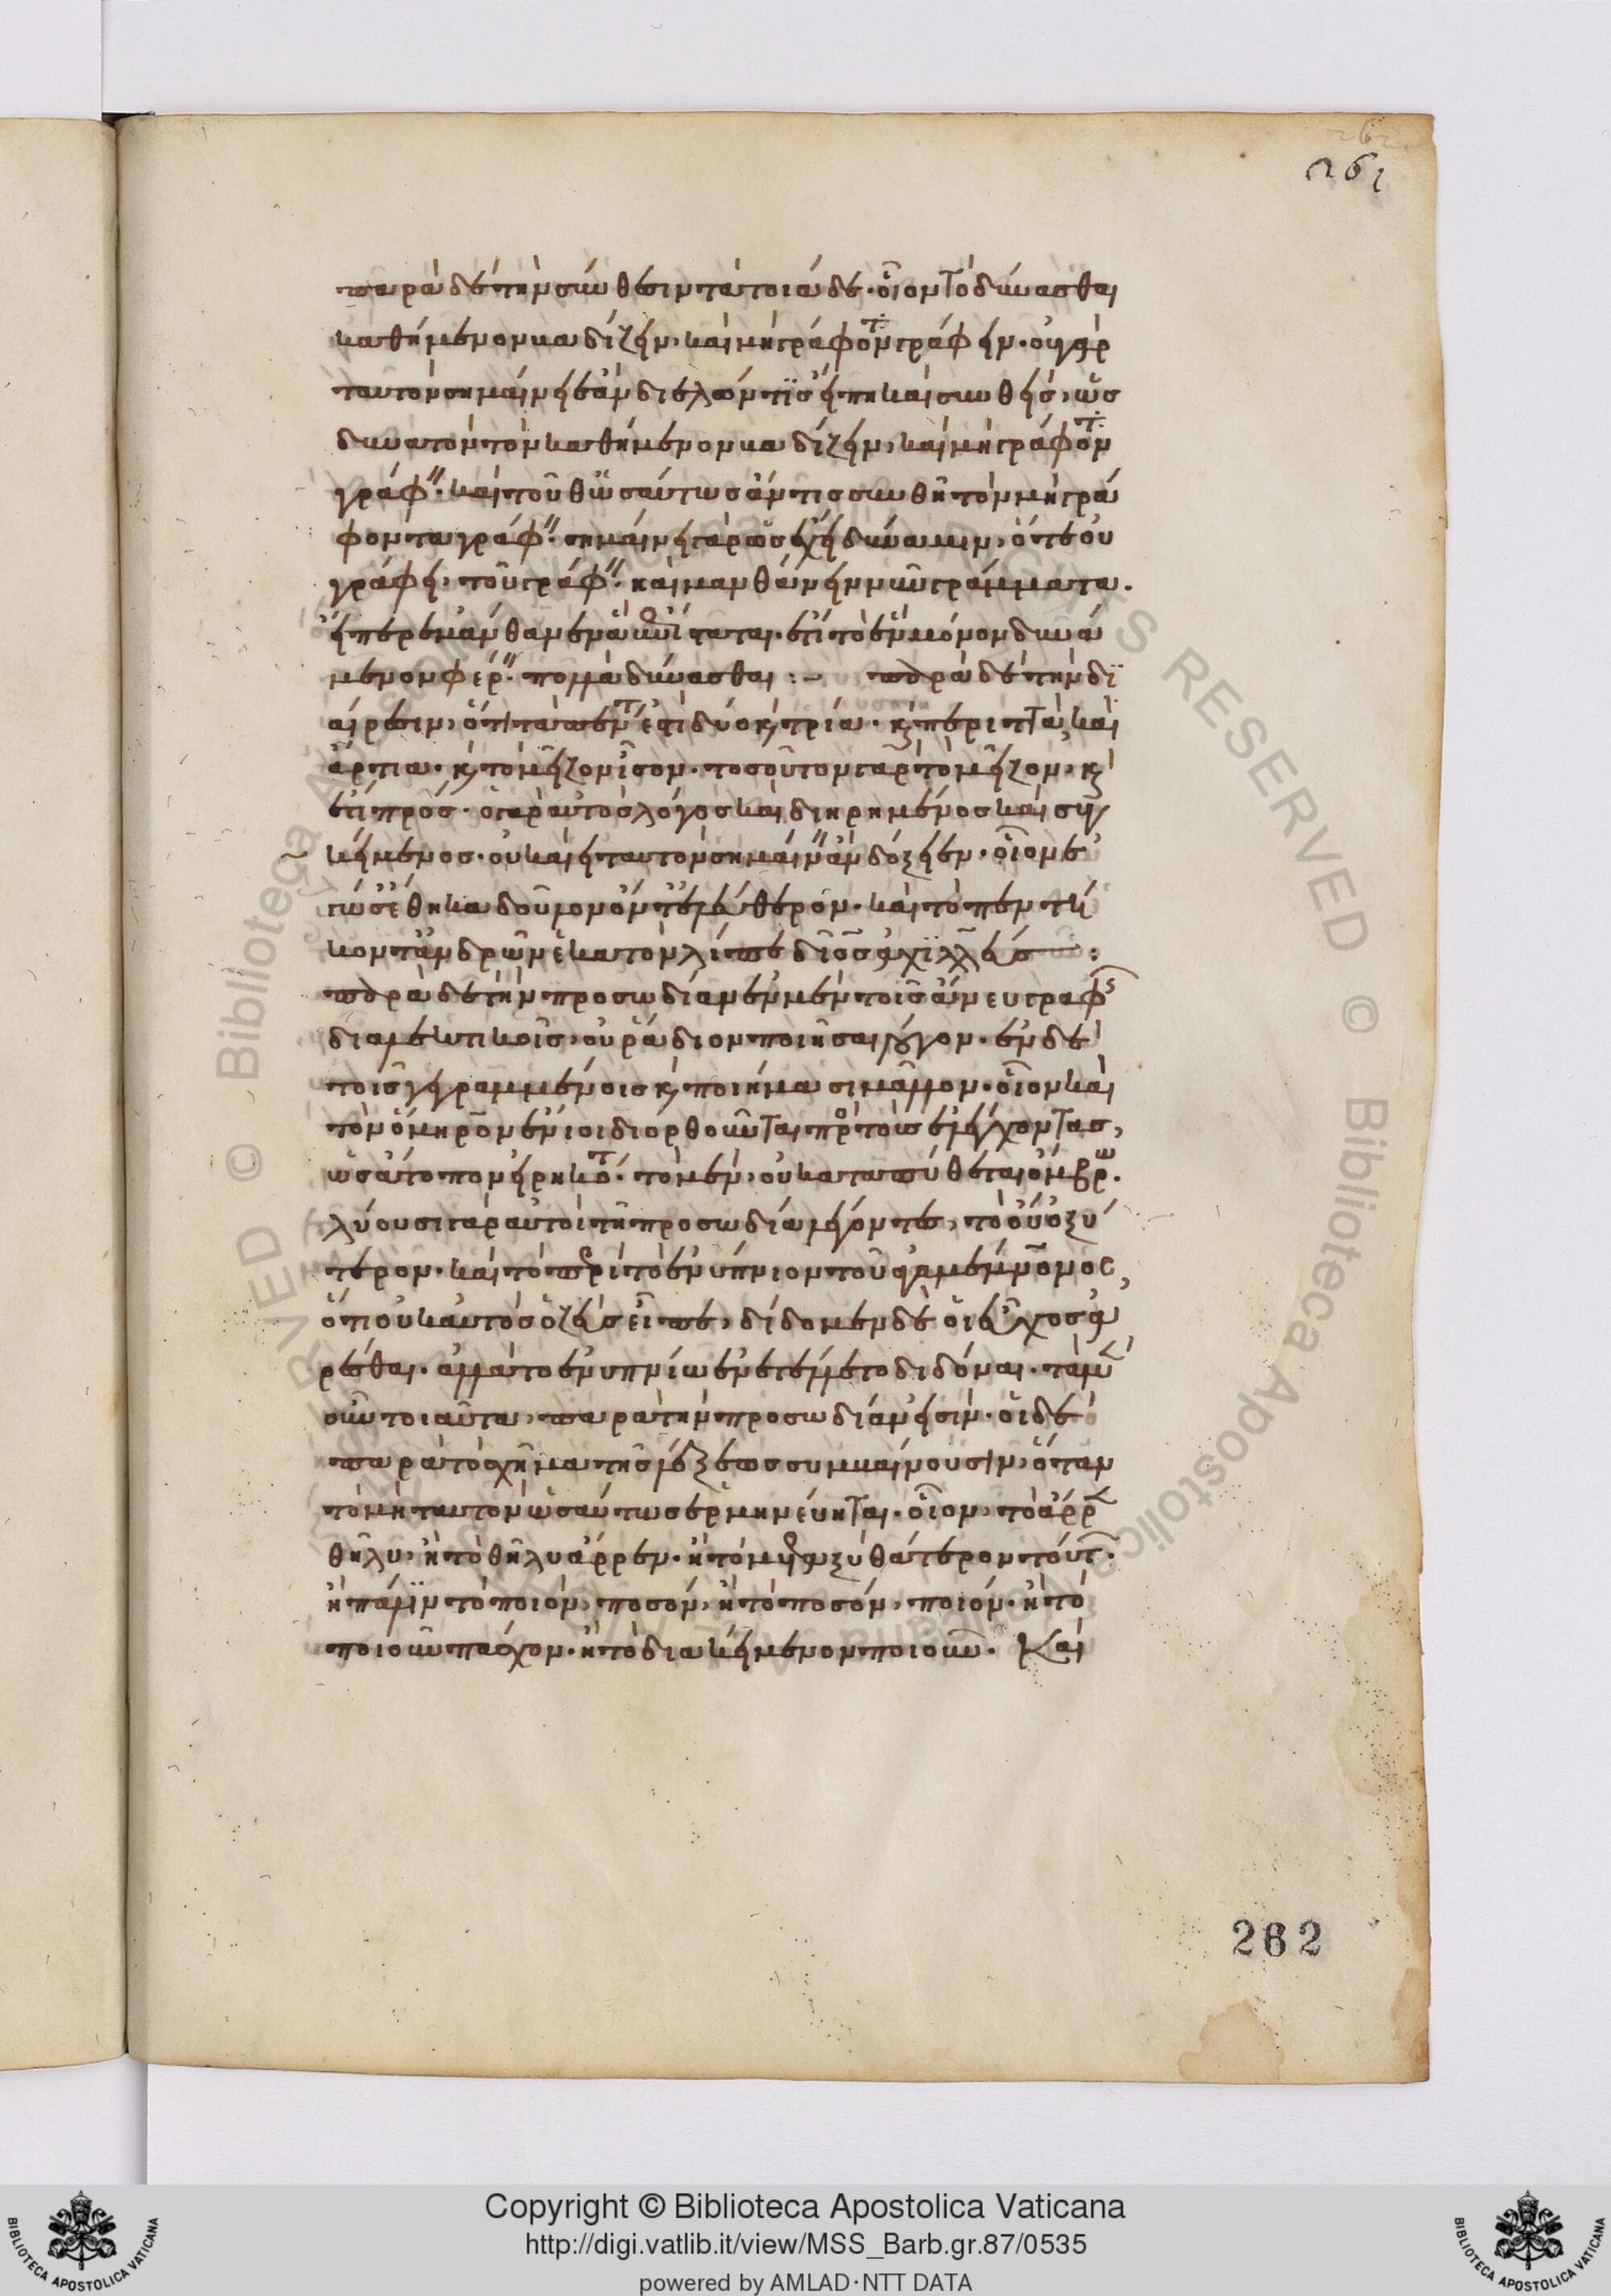 261
παρὰ δὲ τὴν σύνθεσιν τὰ τοιάδε. οἷον τὸ δύνασθαι
καθήμενον βαδίζειν, καὶ μὴ γράφοντα γράφειν. οὐ γὰρ
ταυτὸν σημαίνει ἐὰν διελών τις εἴπη καὶ συνθείς, ὡς
δυνατὸν τὸν καθήμενον βαδίζειν, καὶ μὴ γράφοντα
γράφειν. καὶ τοῦθ' ὡσαύτως ἄν τις συνθῆ τὸν μὴ γρά
φοντα γράφειν. σημαίνει γὰρ ὡς ἔχει δύναμιν, ὅτε οὐ
γράφει, τοῦ γράφειν. καὶ μανθάνειν νῦν γράμματα.
εἴπερ ἐμάνθανεν ἃ ἐπίσταται. ἔτι τὸ ἓν μόνον δυνά
μενον φέρειν. πολλὰ δύνασθαι :– παρὰ δὲ τὴν δι
αίρεσιν, ὅτι τὰ πέντε ἐστὶ δύο καὶ τρία. καὶ περιττὰ καὶ
ἄρτια. καὶ τὸ μεῖζον ἴσον. τοσοῦτον γὰρ τὸ μεῖζον, καὶ
ἔτι πρός. ὁ γὰρ αὐτὸς λόγος καὶ διῃρημένος καὶ συγ
κείμενος. οὐκ ἀεὶ ταυτὸν σημαίνειν ἂν δόξειεν. οἷον ἐ
γώ σ' ἔθηκα δοῦλον ὄντ' ἐλεύθερον. καὶ τὸ πεντή
κοντ' ἀνδρῶν ἑκατὸν λίπε δῖος ἀχιλλεύς :
παρὰ δὲ τὴν προσωδίαν ἐν μὲν τοῖς ἄνευ γραφῆς
διαλεκτικοῖς, οὐ ῥάδιον ποιῆσαι λόγον. ἐν δὲ
τοῖς γεγραμμένοις καὶ ποιήμασι μᾶλλον. οἷον καὶ
τὸν ὅμηρον ἔνιοι διορθοῦνται πρὸς τοὺς ἐλέγχοντας,
ὡς ἀτόπον εἰρηκότα. τὸ μὲν, οὐ καταπύθεται ὄμβρω.
λύουσι γὰρ αὐτοὶ τῆ προσωδία λέγοντες, τὸ οὐ ὀξύ
τερον. καὶ τὸ περὶ τὸ ἐνύπνιον τοῦ ἀγαμέμνονος,
ὅτι οὐκ αὐτὸς ὁ ζεὺς εἶπε, δίδομεν δέ οἱ εὖχος ἀ
ρέσθαι. ἀλλὰ τῶ ἐνυπνίω ἐνετέλλετο διδόναι. τὰ μὲν
οὖν τοιαῦτα, παρὰ τὴν προσωδίαν εἰσίν. οἱ δὲ
παρὰ τὸ σχῆμα τῆς λέξεως συμβαίνουσιν, ὅταν
τὸ μὴ ταυτὸν ὡσαύτως ἑρμηνεύηται. οἷον, τὸ ἄρρεν
θῆλυ, ἢ τὸ θῆλυ ἄρρεν. ἢ τὸ μεταξὺ θάτερον τούτων.
ἢ πάλιν τὸ ποιὸν, ποσόν, ἢ τὸ ποσόν, ποιόν. ἢ τὸ
ποιοῦν πάσχον. ἢ τὸ διακείμενον ποιοῦν. Καὶ
262
Copyright © Biblioteca Apostolica Vaticana
http://digi.vatlib.it/view/MSS_Barb.gr.87/0535
powered by AMLAD·NTT DATA